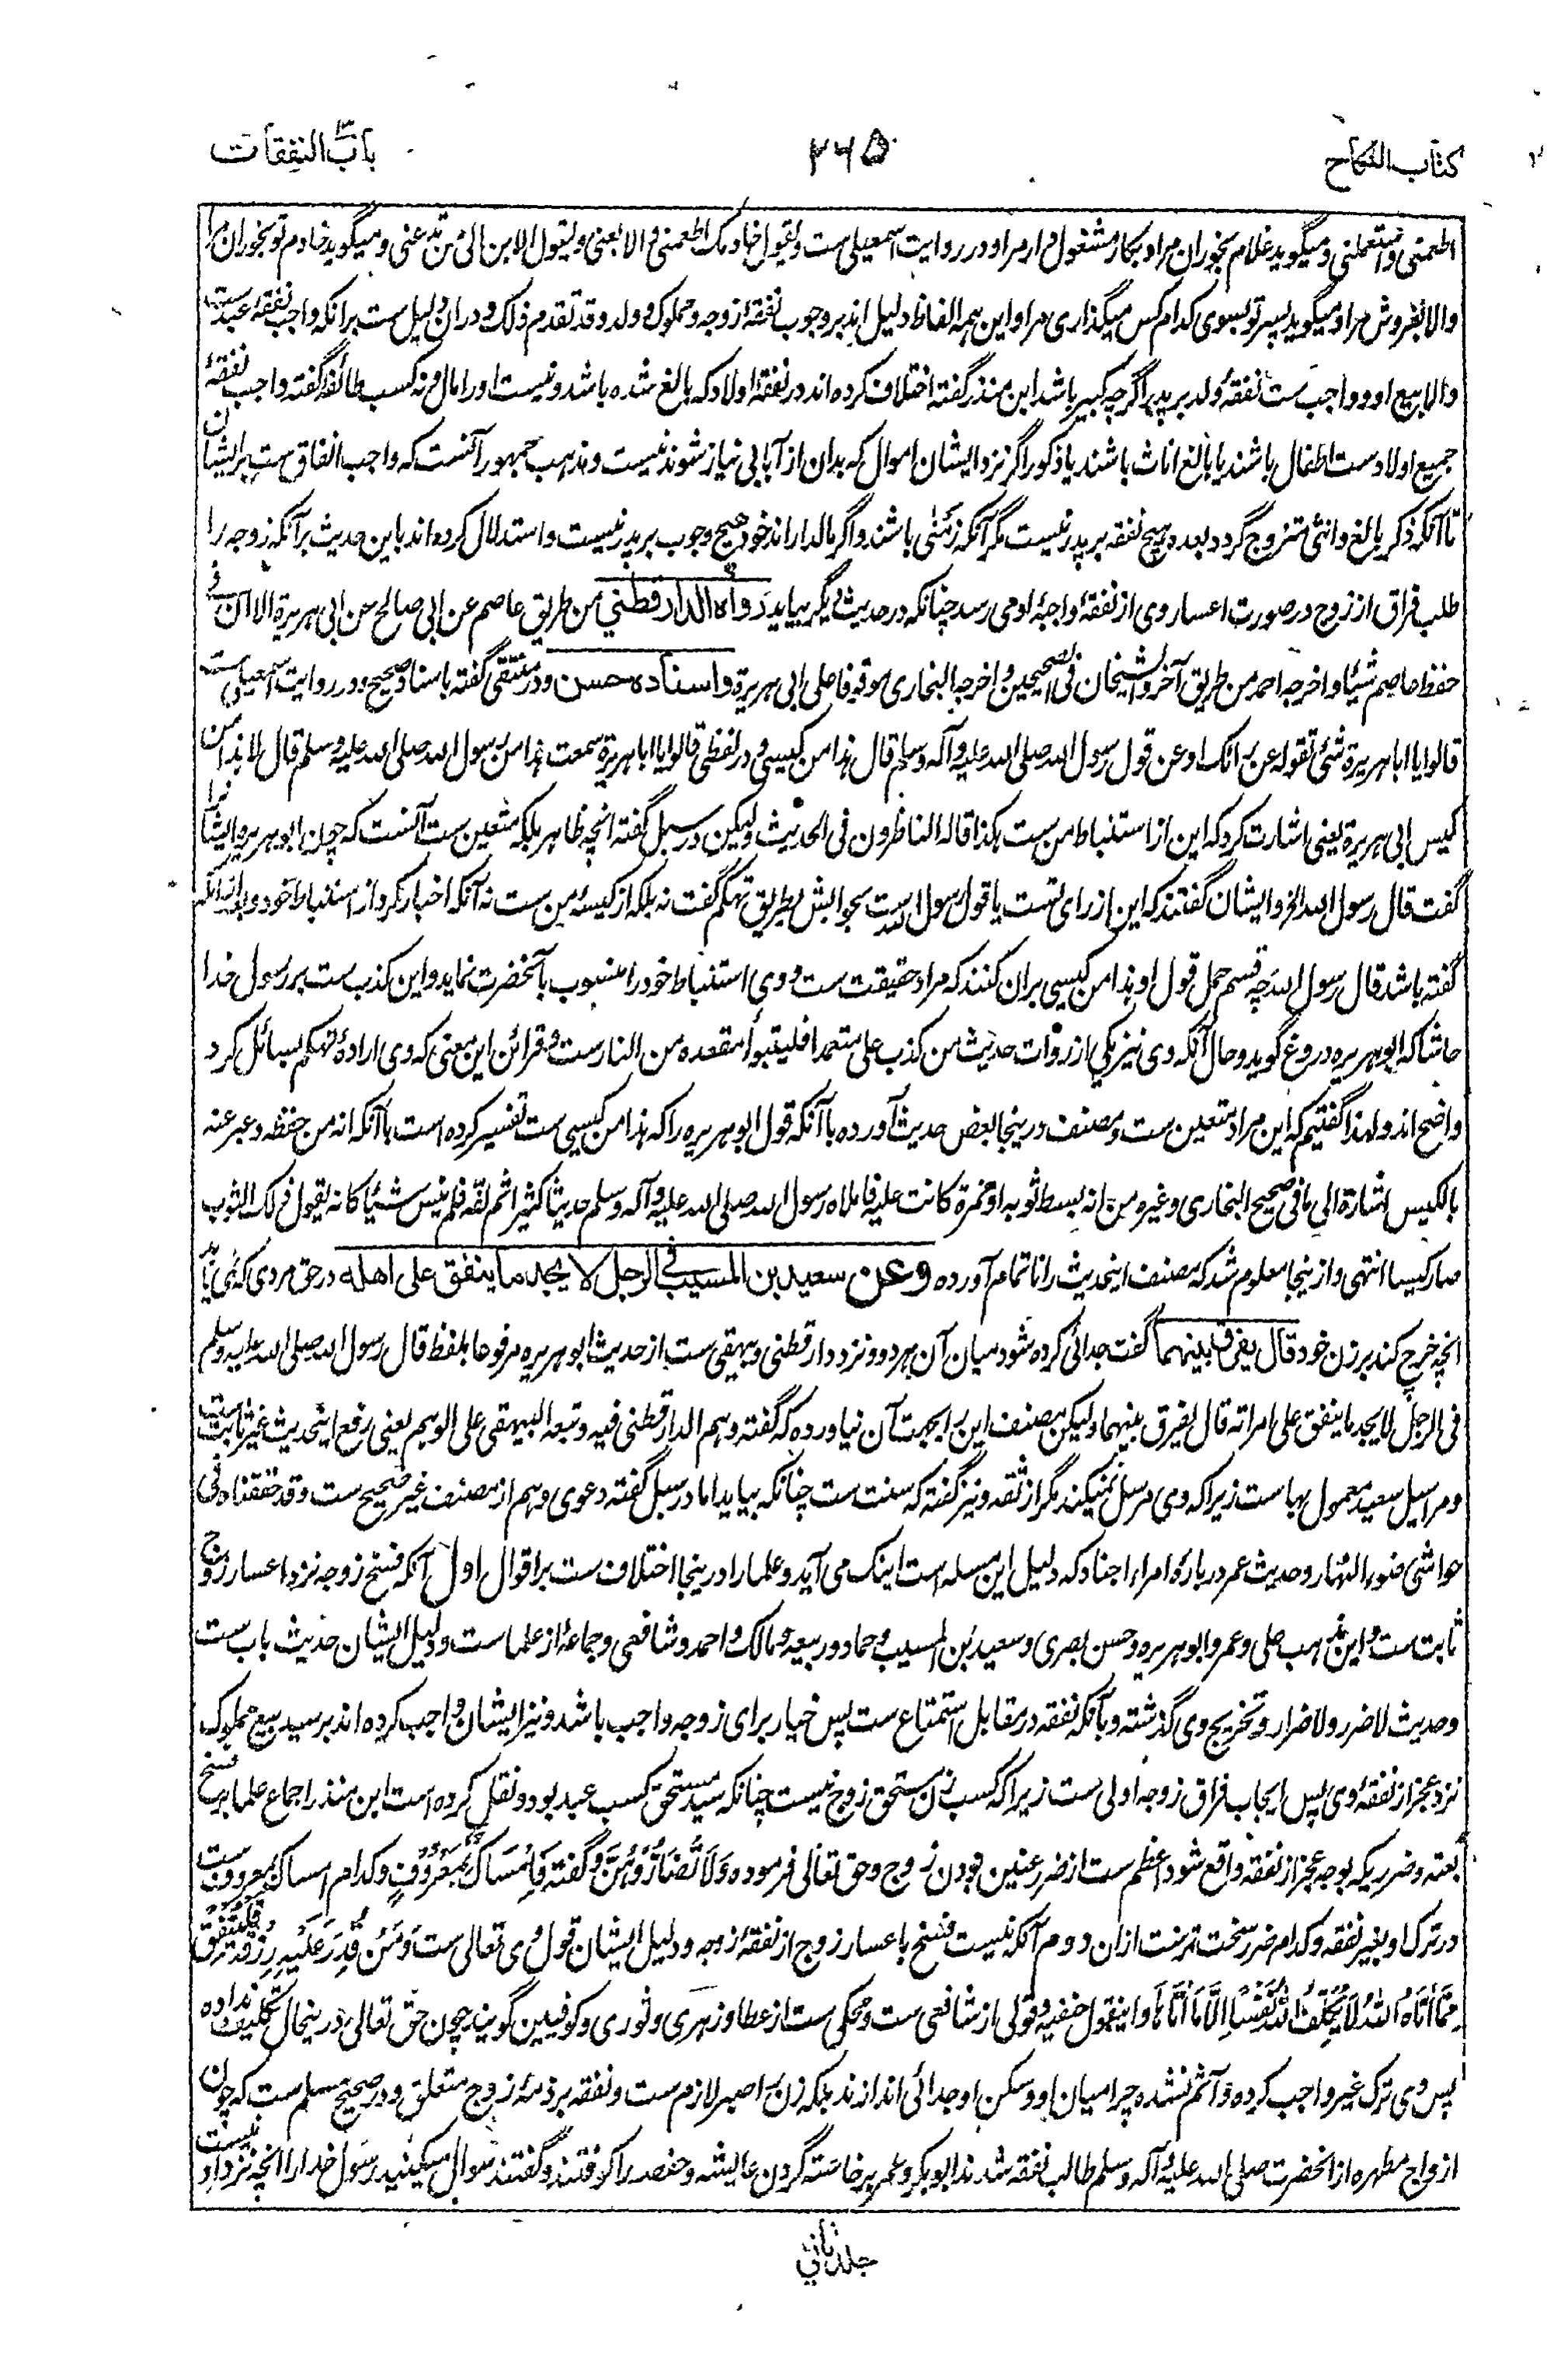 کتاب النکاح
۲۶۵
باب النفقات
اطعمنی واستعملنی ومیگوید غلام بخوران مرا و بکار مشغول دار مرا و در روایت اسمعیلی ست و یقول خادمک اطعمنی والا بعنی ویقول الابن الی من تدعنی و میگوید خادم تو بخوران مرا
والا بفروش مرا و میگوید پسر تو بسوی کدام کس میگذاری مرا و این همه الفاظ دلیل اند بر وجوب نفقهٔ زوجه و مملوک و ولد و قد تقدم ذلک و دران دلیل ست برانکه واجب نفقهٔ عبد ست
والا بیع او و واجب ست نفقهٔ ولد بر پدر اگرچه کبیر باشد ابن منذر گفته اختلاف کرده اند در نفقهٔ اولاد که بالغ شده باشد و نیست او را مال و نه کسب طائفه گفته واجب نفقهٔ
جمیع اولاد ست اطفال باشند یا بالغ اناث باشند یا ذکور اگر نزد ایشان اموال که بدان از آبا بی نیاز شوند نیست و مذهب جمهور آنست که واجب انفاق ست بر ایشان
تا آنکه ذکر بالغ و انثی متزوج گردد بعده هیچ نفقه بر پدر نیست مگر آنکه زمنی باشند و اگر مالدار اند خود هیچ وجوب بر پدر نیست و استدلال کرده اند باین حدیث بر آنکه زوجه را
طلب فراق از زوج در صورت اعسار وی از نفقهٔ واجبهٔ او می رسد چنانکه در حدیث دیگر بیاید رواه الدارقطني من طریق عاصم عن ابی صالح عن ابی هریرة الا ان فی
حفظ عاصم شیئا و اخرجه احمد من طریق آخر و الشیخان فی الصحیحین و اخرجه البخاری موقوفا علی ابی هریرة واسناده حسن و در منتقی گفته باسناد صحیح و در روایت اسمعیلی ست
قالوا یا ابا هریرة شئ تقوله عن رایک او عن قول رسول الله صلی الله علیه وآله وسلم قال هذا من کیسی و در لفظی قالوا یا ابا هریرة سمعت هذا من رسول الله صلی الله علیه وسلم قال لا هذا من
کیس ابی هریرة یعنی اشارت کرد که این از استنباط من ست هکذا قاله الناظرون فی الحدیث ولیکن در سبل گفته انچه ظاهر بلکه متعین ست آنست که چون ابو هریره ایشانرا
گفت قال رسول الله الخ و ایشان گفتند که این از رای تست یا قول رسول الله ست بجوابش بطریق تهکم گفت نه بلکه از کیسهٔ من ست نه آنکه اخبار کرد از استنباط خود و بعد ازانکه
گفته باشد قال رسول الله چه قسم حمل قول او هذا من کیسی بران کنند که مراد حقیقت ست و وی استنباط خود را منسوب بآنحضرت نماید و این کذب ست بر رسول خدا
حاشا که ابو هریره دروغ گوید و حال آنکه وی نیز یکی از روات حدیث من کذب علی متعمدا فلیتبوأ مقعده من النار ست و قرائن این معنی که وی ارادهٔ تهکم بسائل کرد
واضح اند و لهذا گفتیم که این مراد متعین ست و مصنف در ینجا بعض حدیث آورده با آنکه قول ابو هریره را که هذا من کیسی ست تفسیر کرده است بآنکه انه من حفظه و عبر عنه
بالکیس اشارة الی ما فی صحیح البخاری و غیره من انه بسط ثوبه او نمرة کانت علیه فاملاه رسول الله صلی الله علیه وآله وسلم حدیثا کثیرا ثم لفه فلم ینس شیئا کانه یقول ذلک الثوب
صار کیسا انتهی و از ینجا معلوم شد که مصنف اینحدیث را ناتمام آورده وعن سعید بن المسیب فی الرجل لا یجد ما ینفق علی اهله در حق مردی که نمی یابد
انچه خرج کند بر زن خود قال یفرق بینهما گفت جدائی کرده شود میان آن هر دو و نزد دارقطنی و بیهقی ست از حدیث ابو هریره مرفوعا بلفظ قال رسول الله صلی الله علیه وسلم
فی الرجل لا یجد ما ینفق علی امراته قال یفرق بینهما ولیکن مصنف این را بجهت آن نیاورده که گفته وهم الدارقطنی فیه و تبعه البیهقی علی الوهم یعنی رفع اینحدیث غیر ثابت ست
و مراسیل سعید معمول بها ست زیرا که وی مرسل نمیکند مگر از ثقه و نیز گفته که سنت ست چنانکه بیاید اما در سبل گفته دعوی وهم از مصنف غیر صحیح ست و قد حققناه فی
حواشی ضوء النهار و حدیث عمر دربارهٔ امراء اجناد که دلیل این مسله است اینک می آید و علما را درینجا اختلاف ست بر اقوال اول آنکه فسخ زوجه نزد اعسار زوج
ثابت ست و این مذهب علی و عمر و ابو هریره و حسن بصری و سعید بن المسیب و حماد و ربیعه و مالک و احمد و شافعی و جماعهٔ از علما ست و دلیل ایشان حدیث باب ست
و حدیث لا ضرر ولا ضرار و تخریج وی گذشته و بآنکه نفقه در مقابل استمتاع ست پس خیار برای زوجه واجب باشد و نیز ایشان واجب کرده اند بر سید بیع مملوک
نزد عجز از نفقهٔ وی پس ایجاب فراق زوجه اولی ست زیرا که کسب زن مستحق زوج نیست چنانکه سید مستحق کسب عبد بود و نقل کرده است ابن منذر اجماع علما بر فسخ
بعنه و ضرریکه بوجه عجز از نفقه واقع شود اعظم ست از ضرر عنین بودن زوج و حق تعالی فرموده وَلَا تُضَارُّوهُنَّ و گفته فَاِمْسَاكٌ بِمَعْرُوفٍ و کدام امساک بمعروف ست
در ترک او بغیر نفقه و کدام ضرر سخت ترست ازان دوم آنکه نیست فسخ باعسار زوج از نفقهٔ زوجه و دلیل ایشان قول وی تعالی ست وَمَنْ قُدِرَ عَلَيْهِ رِزْقُهُ فَلْيُنْفِقْ
مِمَّا اٰتَاهُ اللّٰهُ لَا يُكَلِّفُ اللّٰهُ نَفْسًا اِلَّا مَا اٰتَاهَا و اینقول حنفیه و قولی از شافعی ست و محکی ست از عطا و زهری و ثوری و کوفیین گویند چون حق تعالی درینحال تکلیف نداده
پس وی ترک غیر واجب کرده و آثم نشده چرا میان او و سکن او جدائی اندازند بلکه زن را صبر لازم ست و نفقه بر ذمهٔ زوج متعلق و در صحیح مسلم ست که چون
ازواج مطهره از آنحضرت صلی الله علیه وآله وسلم طالب نفقه شدند ابو بکر و عمر برخاسته گردن عایشه و حفصه را کوفتند و گفتند سوال میکنید رسول خدا را انچه نزد او نیست
جلد ثانی